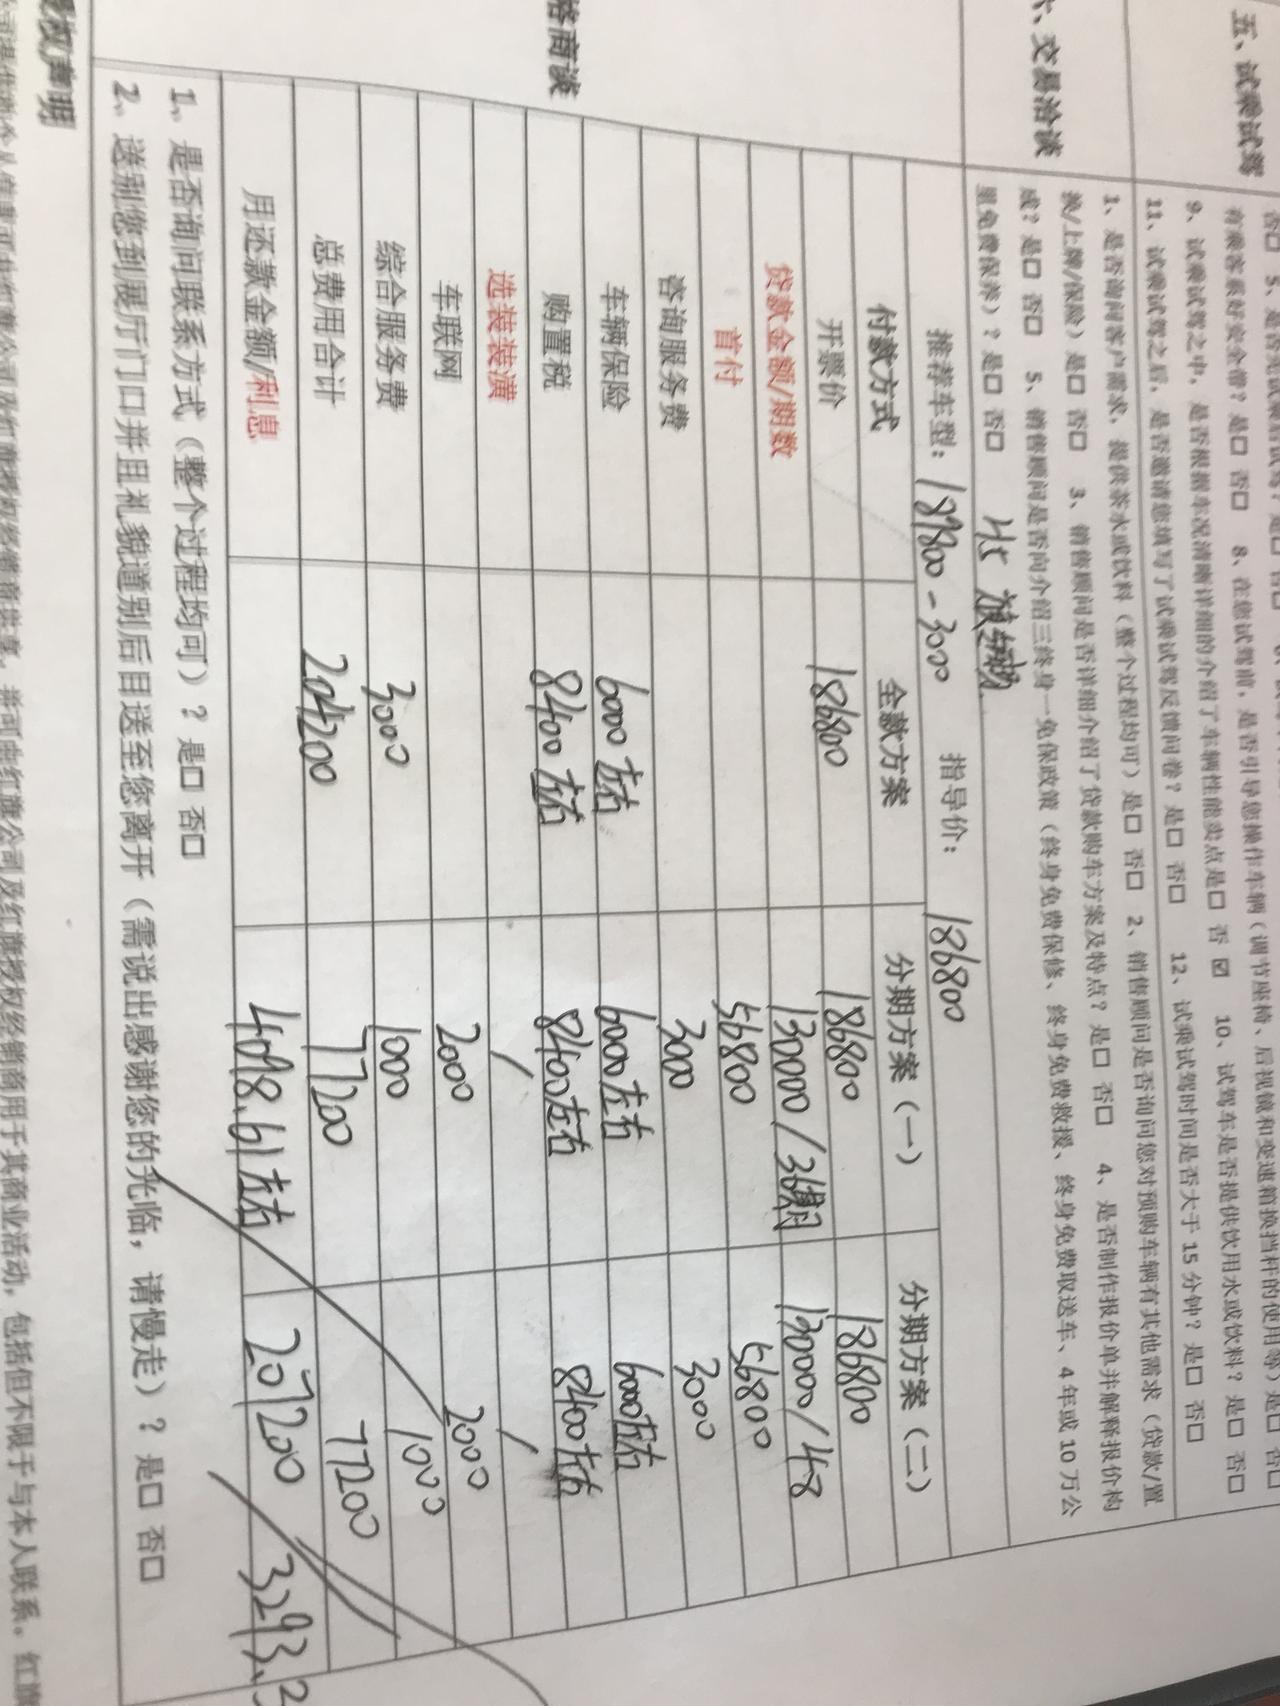 五、试乘试驾
有乘客系好安全带？是□ 否□ 8、在您试驾前，是否引导您操作车辆（调节座椅、后视镜和变速箱换挡杆的使用等）是□ 否□
9、试乘试驾之中，是否根据车况清晰详细的介绍了车辆性能卖点是□ 否☑ 10、试驾车是否提供饮用水或饮料？是□ 否□
11、试乘试驾之后，是否邀请您填写了试乘试驾反馈问卷？是□ 否□ 12、试乘试驾时间是否大于 15 分钟？是□ 否□
六、交易洽谈
1、是否询问客户需求，提供茶水或饮料（整个过程均可）是□ 否□ 2、销售顾问是否询问您对预购车辆有其他需求（贷款/置
换/上牌/保险）是□ 否□ 3、销售顾问是否详细介绍了贷款购车方案及特点？是□ 否□ 4、是否制作报价单并解释报价构
成？是□ 否□ 5、销售顾问是否向介绍三终身一免保政策（终身免费保修、终身免费救援、终身免费取送车、4 年或 10 万公
里免费保养）？是□ 否□
H5
推荐车型： 189800－3000 指导价： 186800
格商谈
付款方式 全款方案 分期方案（一） 分期方案（二）
开票价 186800 186800 186800
贷款金额/期数 130000/36期 130000/48
首付 56800 56800
咨询服务费 3000 3000
车辆保险 6000左右 6000左右 6000左右
购置税 8400左右 8400左右 8400左右
选装装潢 / /
车联网 2000 2000
综合服务费 3000 1000 1000
总费用合计 204200 77200 77200
用还款金额/利息 4098.61左右 207200 3293.3
1、是否询问联系方式（整个过程均可）？是□ 否□
2、送别您到展厅门口并且礼貌道别后目送至您离开（需说出感谢您的光临，请慢走）？是□ 否□
授权声明
并可由红旗公司及红旗授权经销商用于其商业活动，包括但不限于与本人联系。红旗